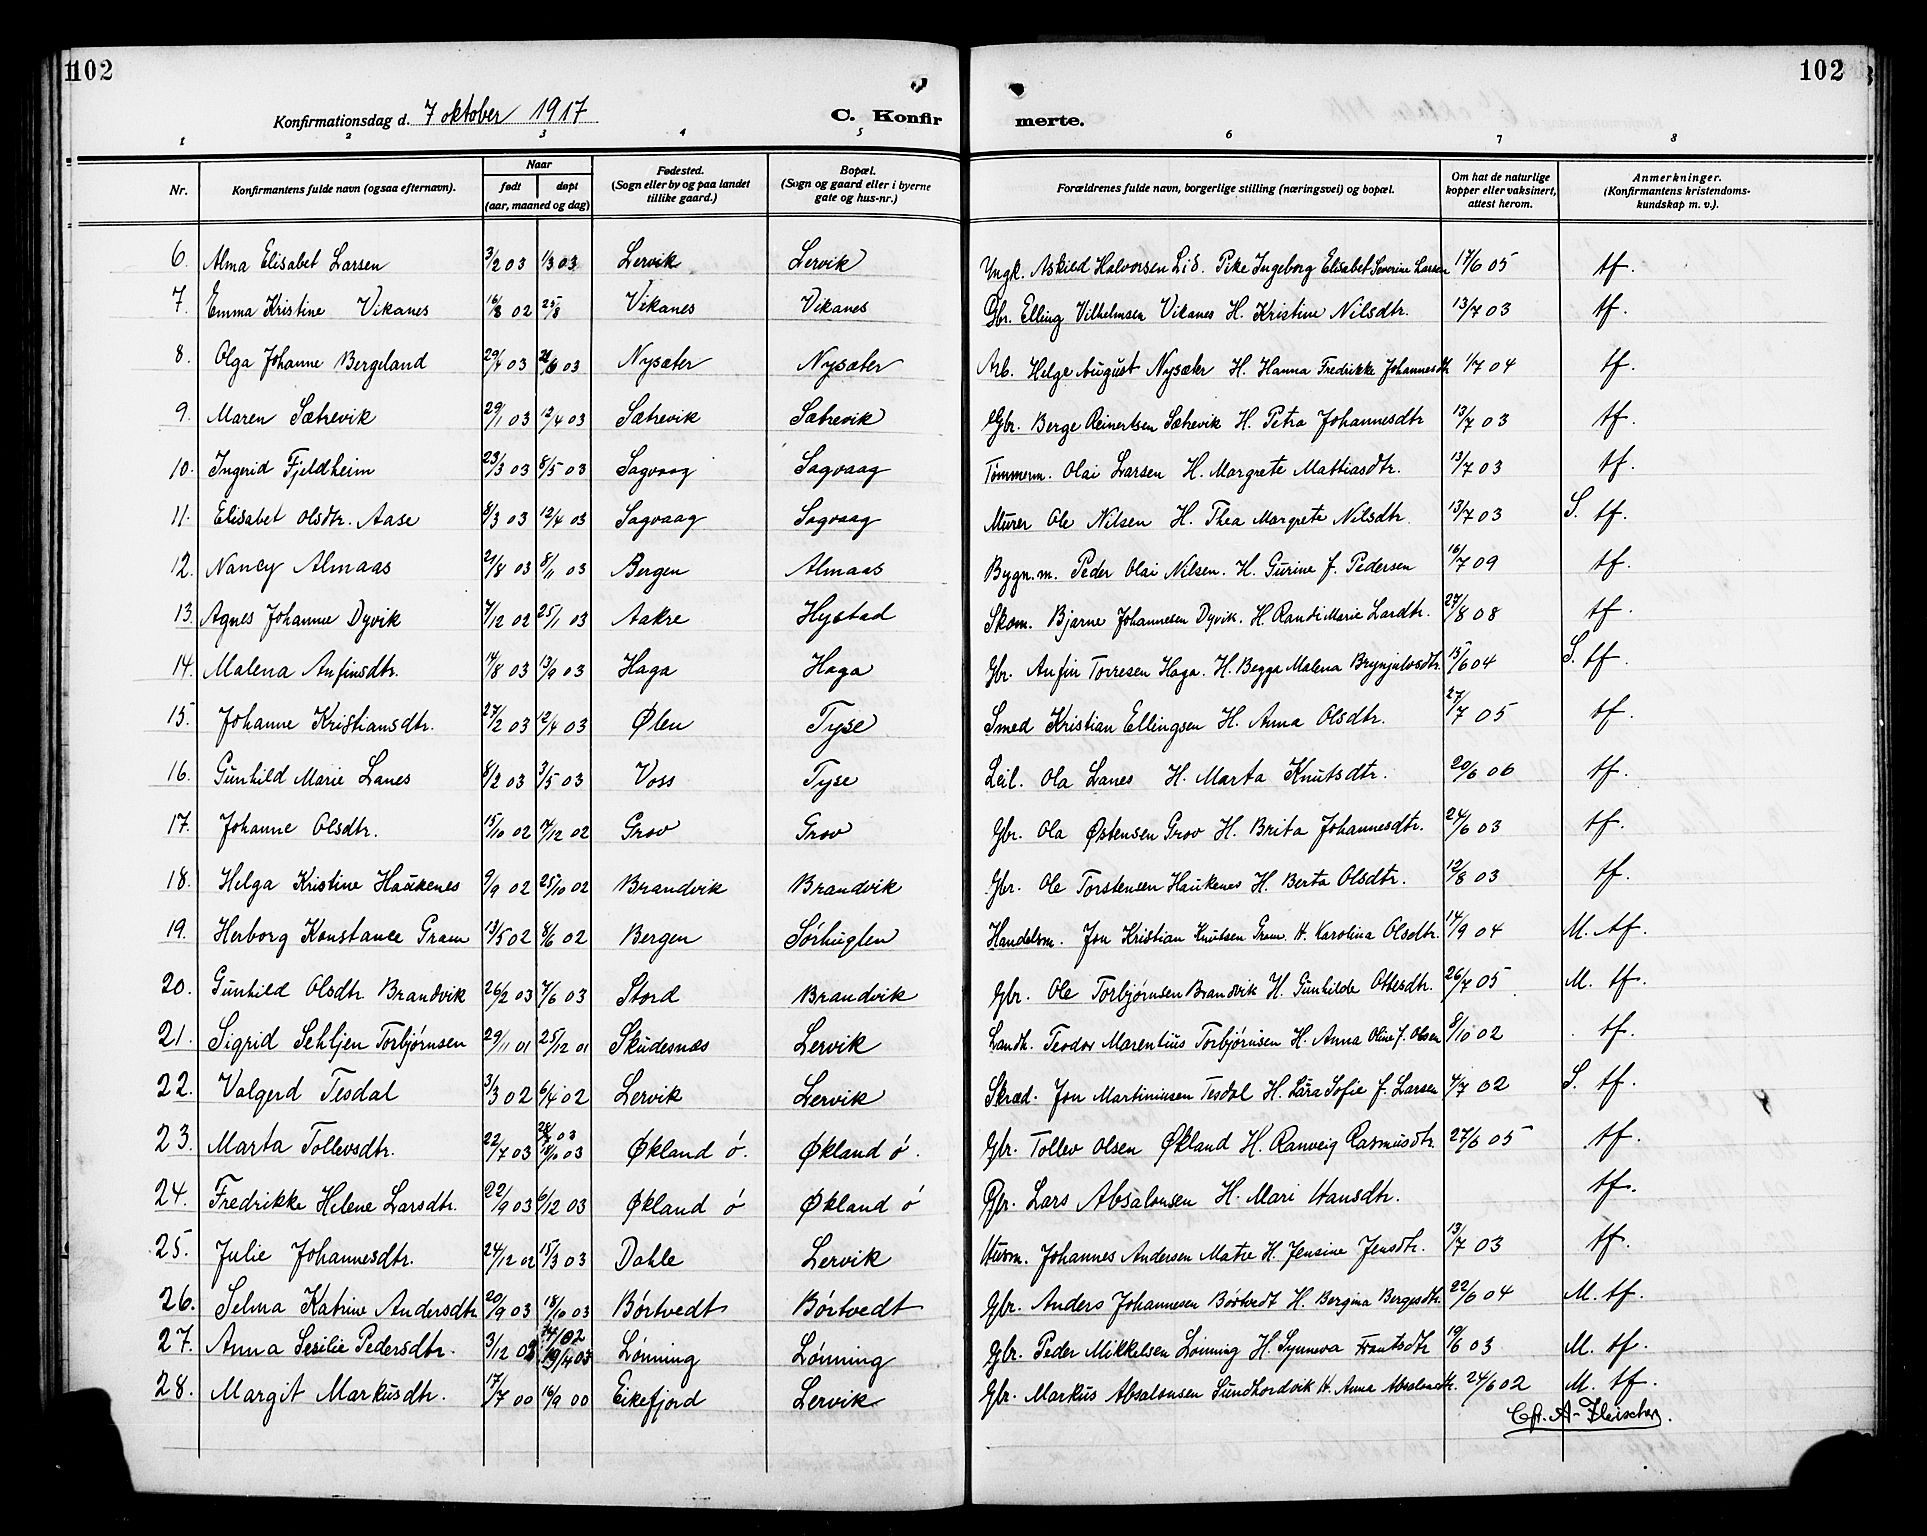 102 102
Konfirmationsdag d. 7 oktober 1917 C. Konfirmerte.
1 2 3 4 5 6 7 8
Nr. Konfirmantens fulde navn (ogsaa efternavn). Naar født døpt (aar, maaned og dag) Fødested. (Sogn eller by og paa landet tillike gaard.) Bopæl. (Sogn og gaard eller i byerne gate og hus-nr.) Forældrenes fulde navn, borgerlige stilling (næringsvei) og bopæl. Om hat de naturlige kopper eller vaksinert, attest herom. Anmerkninger. (Konfirmantens kristendomskundskap m. v.).
6. Alma Elisabet Larsen 3/2 03 1/3 03 Lervik Lervik Ungk. Askild Halvorsen Lid. Pike Ingeborg Elisabet Severine Larsen 17/6 05 tf.
7. Emma Kristine Vikanes 16/8 02 25/8 Vikanes Vikanes Gbr. Elling Vilhelmsen Vikanes H. Kristine Nilsdtr. 13/7 03 tf.
8. Olga Johanne Bergeland 29/4 03 21/6 03 Nysæter Nysæter Arb. Helge August Nysæter H. Hanna Fredrikke Johannesdtr 1/7 04 tf.
9. Maren Sætrevik 29/1 03 12/4 03 Sætrevik Sætrevik Gbr. Berge Reinertsen Sætrevik H. Petra Johannesdtr 13/7 03 tf.
10. Ingerid Fjeldheim 23/3 03 8/5 03 Sagvaag Sagvaag Tømmerm. Olai Larsen H. Margrete Mattiasdtr. 13/7 03 tf.
11. Elisabet Olsdtr. Aase 8/3 03 12/4 03 Sagvaag Sagvaag Murer Ole Nilsen H. Thea Margrete Nilsdtr. 13/7 03 S. tf.
12. Nancy Almaas 21/8 03 8/11 03 Bergen Almaas Bygn.m. Peder Olai Nilsen. H. Gurine f. Pedersen 16/7 09 tf.
13. Agnes Johanne Dyvik 7/12 02 25/1 03 Aakre Hystad Skom. Bjarne Johannesen Dyvik. H. Randi Marie Lardtr. 27/8 08 tf.
14. Malena Anfinsdtr. 14/8 03 13/9 03 Haga Haga Gbr. Anfin Torresen Haga. H. Begga Malena Brynjulvsdtr. 15/6 04 S. tf.
15. Johanne Kristiansdtr. 27/2 03 12/4 03 Ølen Tyse Smed Kristian Ellingsen H. Anna Olsdtr. 27/7 05 tf.
16. Gunhild Marie Lanes 8/2 03 3/5 03 Voss Tyse Leil. Ola Lanes H. Marta Knutsdtr. 20/6 06 tf.
17. Johanne Olsdtr. 15/10 02 7/12 02 Grov Grov Gbr. Ola Østensen Grov H. Brita Johannesdtr. 24/6 03 tf.
18. Helga Kristine Haukenes 9/9 02 25/10 02 Brandvik Brandvik Gbr. Ole Torstensen Haukenes H. Berta Olsdtr. 12/8 03 tf.
19. Herborg Konstance Gram 13/5 02 8/6 02 Bergen Sørhuglen Handelsm. Jon Kristian Knutsen Gram H. Karolina Olsdtr. 14/9 04 M. tf.
20. Gunhild Olsdtr Brandvik 26/2 03 7/6 03 Stord Brandvik Gbr. Ole Torbjørnsen Brandvik H. Gunhilde Ottesdtr. 26/7 05 M. tf.
21. Sigrid Sehljen Torbjørnsen 29/11 01 25/12 01 Skudesnæs Lervik Landh. Teodor Marentius Torbjørnsen H. Anna Oline f. Olsen 8/10 02 tf.
22. Valgerd Tesdal 3/3 02 6/4 02 Lervik Lervik Skræd. Jon Martiniusen Tesdal H. Lára Sofie f. Larsen 4/7 02 S. tf.
23. Marta Tollevsdtr. 22/7 03 18/10 03 Økland ó. Økland ó. Gbr. Tollev Olsen Økland H. Ranveig Rasmusdtr. 27/6 05 tf.
24. Fredrikke Helene Larsdtr. 22/9 03 6/12 03 Økland ó Økland ó Gbr. Lars Absalonsen H. Mari Hansdtr. tf.
25. Julie Johannesdtr. 24/12 02 15/3 03 Dahle Lervik Husm. Johannes Andersen Matre H. Jensine Jensdtr. 13/7 03 tf.
26. Selma Katrine Andersdtr 20/9 03 18/10 03 Børtvedt Børtvedt Gbr. Anders Johannesen Børtvedt H. Bergina Bergesdtr. 22/6 04 M. tf.
27. Anna Sesilie Pedersdtr. 3/12 02 19/4 03 Lønning Lønning Gbr. Peder Mikkelsen Lønning H. Synneva Frantsdtr 19/6 03 M. tf.
28. Margit Markusdtr. 17/7 00 16/9 00 Eikefjord Lervik Gbr. Markus Absalonsen Sundhordvik H. Anna Absalonsdtr. 24/6 02 M. tf.
Chr. A. Fleischer.